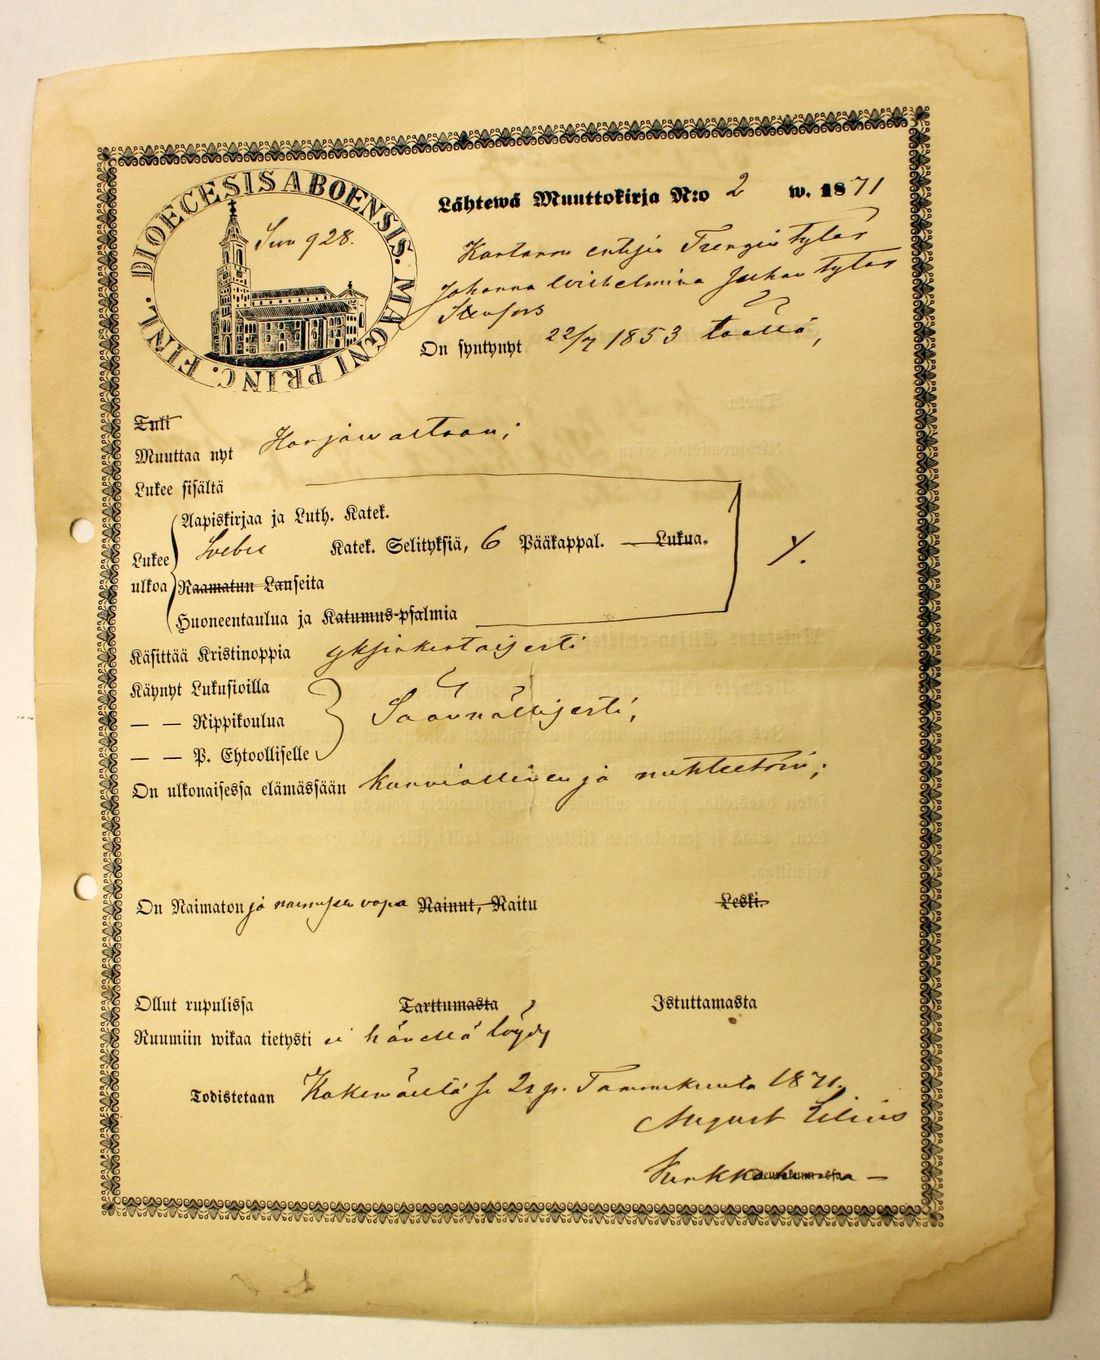 DIOECESIS ABOENSIS. MAGNI PRINC. FINL.
928.
Lähtewä Muuttokirja N:o 2 w. 1871
entisen tytär
Johanna Wilhelmina Juhan tytär
On syntynyt 22/7 1853 täällä,
Tuli
Muuttaa nyt Harjawaltaan;
Lukee sisältä
Aapiskirjaa ja Luth. Katek.
Lukee Svebii Katek. Selityksiä, 6 Pääkappal. — Lukua.
ulkoa Raamatun Lauseita
Huoneentaulua ja Katumus-psalmia
Käsittää Kristinoppia yksinkertaisesti
Käynyt Lukusioilla
— — Rippikoulua Säännöllisesti,
— — P. Ehtoolliselle
On ulkonaisessa elämässään kunniallinen ja nuhteetoin;
On Naimaton ja naimisen vapa Nainut, Naitu Leski.
Ollut rupulissa Tarttumasta Istuttamasta
Ruumiin wikaa tietysti ei hänellä löydy
Todistetaan Kokemäellä 2 p. Tammikuuta 1871.
August Lilius
Kirkkoherra —